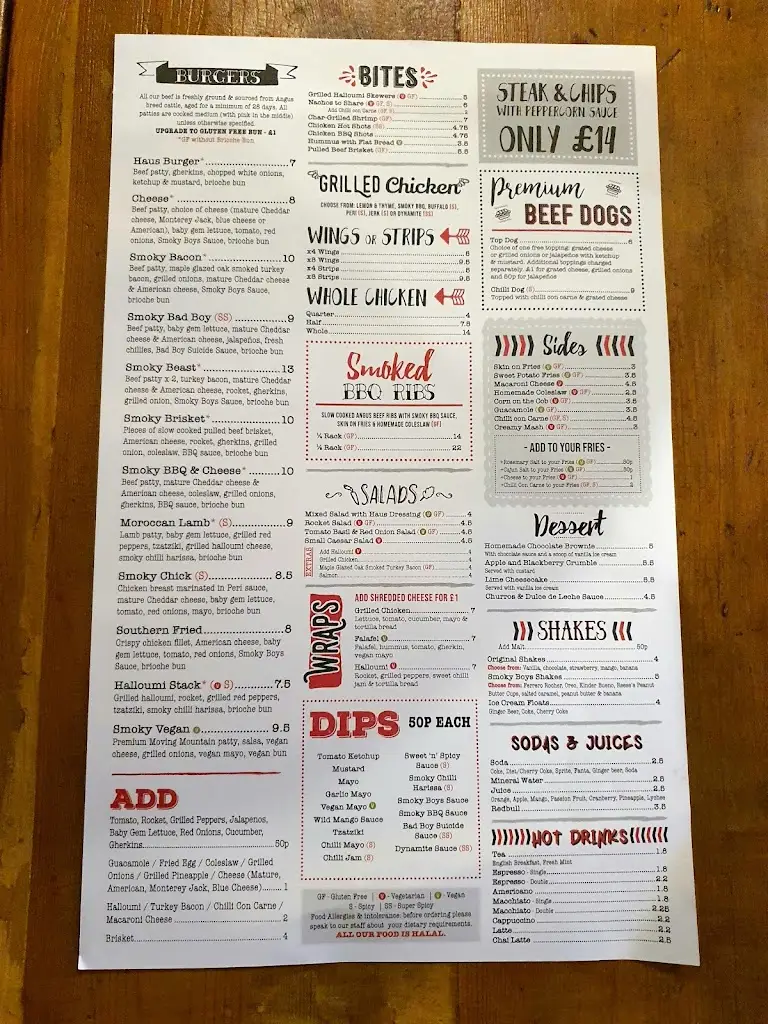 BURGERS
All our beef is freshly ground & sourced from Angus
breed cattle, aged for a minimum of 28 days. All
patties are cooked medium (with pink in the middle)
unless otherwise specified.
UPGRADE TO GLUTEN FREE BUN - £1
*GF without Brioche Bun
Haus Burger* 7
Beef patty, gherkins, chopped white onions,
ketchup & mustard, brioche bun
Cheese* 8
Beef patty, choice of cheese (mature Cheddar
cheese, Monterey Jack, blue cheese or
American), baby gem lettuce, tomato, red
onions, Smoky Boys Sauce, brioche bun
Smoky Bacon* 10
Beef patty, maple glazed oak smoked turkey
bacon, grilled onions, mature Cheddar cheese
& American cheese, Smoky Boys Sauce,
brioche bun
Smoky Bad Boy (SS) 9
Beef patty, baby gem lettuce, mature Cheddar
cheese & American cheese, jalapeños, fresh
chillies, Bad Boy Suicide Sauce, brioche bun
Smoky Beast* 13
Beef patty x 2, turkey bacon, mature Cheddar
cheese & American cheese, rocket, gherkins,
grilled onion, Smoky Boys Sauce, brioche bun
Smoky Brisket* 10
Pieces of slow cooked pulled beef brisket,
American cheese, rocket, gherkins, grilled
onion, coleslaw, BBQ sauce, brioche bun
Smoky BBQ & Cheese* 10
Beef patty, mature Cheddar cheese &
American cheese, coleslaw, grilled onions,
gherkins, BBQ sauce, brioche bun
Moroccan Lamb* (S) 9
Lamb patty, baby gem lettuce, grilled red
peppers, tzatziki, grilled halloumi cheese,
smoky chilli harissa, brioche bun
Smoky Chick (S) 8.5
Chicken breast marinated in Peri sauce,
mature Cheddar cheese, baby gem lettuce,
tomato, red onions, mayo, brioche bun
Southern Fried 8
Crispy chicken fillet, American cheese, baby
gem lettuce, tomato, red onions, Smoky Boys
Sauce, brioche bun
Halloumi Stack* (V S) 7.5
Grilled halloumi, rocket, grilled red peppers,
tzatziki, smoky chilli harissa, brioche bun
Smoky Vegan V 9.5
Premium Moving Mountain patty, salsa, vegan
cheese, grilled onions, vegan mayo, vegan bun
ADD
Tomato, Rocket, Grilled Peppers, Jalapenos,
Baby Gem Lettuce, Red Onions, Cucumber,
Gherkins 50p
Guacamole / Fried Egg / Coleslaw / Grilled
Onions / Grilled Pineapple / Cheese (Mature,
American, Monterey Jack, Blue Cheese) 1
Halloumi / Turkey Bacon / Chilli Con Carne /
Macaroni Cheese 2
Brisket 4
BITES
Grilled Halloumi Skewers (V GF) 5
Nachos to Share (V GF, S) 6
Add Chilli con Carne (GF, S) 2
Char-Grilled Shrimp (GF) 7
Chicken Hot Shots (SS) 4.75
Chicken BBQ Shots 4.75
Hummus with Flat Bread V 3.5
Pulled Beef Brisket (GF) 5.5
GRILLED Chicken
CHOOSE FROM: LEMON & THYME, SMOKY BBQ, BUFFALO (S),
PERI (S), JERK (S) OR DYNAMITE (SS)
WINGS OR STRIPS
x4 Wings 5
x8 Wings 9.5
x4 Strips 5
x8 Strips 9.5
WHOLE CHICKEN
Quarter 4
Half 7.5
Whole 14
Smoked
BBQ RIBS
SLOW COOKED ANGUS BEEF RIBS WITH SMOKY BBQ SAUCE,
SKIN ON FRIES & HOMEMADE COLESLAW (GF)
Rack (GF) 14
Rack (GF) 22
SALADS
Mixed Salad with Haus Dressing (V GF) 4
Rocket Salad (V GF) 4.5
Tomato Basil & Red Onion Salad (V GF) 4.5
Small Caesar Salad V 4.5
EXTRAS
Add Halloumi V 4
Grilled Chicken 4
Maple Glazed Oak Smoked Turkey Bacon (GF) 4
Salmon 4
WRAPS
ADD SHREDDED CHEESE FOR £1
Grilled Chicken 7
Lettuce, tomato, cucumber, mayo &
tortilla bread
Falafel V 7
Falafel, hummus, tomato, gherkin,
vegan mayo
Halloumi V 7
Rocket, grilled peppers, sweet chilli
jam & tortilla bread
DIPS 50P EACH
Tomato Ketchup
Mustard
Mayo
Garlic Mayo
Vegan Mayo V
Wild Mango Sauce
Tzatziki
Chilli Mayo (S)
Chilli Jam (S)
Sweet 'n' Spicy
Sauce (S)
Smoky Chilli
Harissa (S)
Smoky Boys Sauce
Smoky BBQ Sauce
Bad Boy Suicide
Sauce (SS)
Dynamite Sauce (SS)
GF - Gluten Free | V - Vegetarian | V - Vegan
S - Spicy | SS - Super Spicy
Food Allergies & intolerance: before ordering please
speak to our staff about your dietary requirements.
ALL OUR FOOD IS HALAL.
STEAK & CHIPS
WITH PEPPERCORN SAUCE
ONLY £14
Premium
BEEF DOGS
Top Dog 6
Choice of one free topping: grated cheese
or grilled onions or jalapeños with ketchup
& mustard. Additional toppings charged
separately. £1 for grated cheese, grilled onions
and 50p for jalapeños
Chilli Dog (S) 9
Topped with chilli con carne & grated cheese
Sides
Skin on Fries (V GF) 3
Sweet Potato Fries (V GF) 3.5
Macaroni Cheese V 4.5
Homemade Coleslaw (V GF) 2.5
Corn on the Cob (V GF) 3.5
Guacamole (V GF) 3.5
Chilli con Carne (GF, S) 4.5
Creamy Mash (V GF) 3
- ADD TO YOUR FRIES -
+Rosemary Salt to your Fries (V GF) 50p
+Cajun Salt to your Fries (V GF) 50p
+Cheese to your Fries (V GF) 1
+Chilli Con Carne to your Fries (GF, S) 2
Dessert
Homemade Chocolate Brownie 5
With chocolate sauce and a scoop of vanilla ice cream
Apple and Blackberry Crumble 5.5
Served with custard
Lime Cheesecake 5.5
Served with vanilla ice cream
Churros & Dulce de Leche Sauce 4.5
SHAKES
Add Malt 50p
Original Shakes 4
Choose from: Vanilla, chocolate, strawberry, mango, banana
Smoky Boys Shakes 5
Choose from: Ferrero Rocher, Oreo, Kinder Bueno, Reese's Peanut
Butter Cups, salted caramel, peanut butter & banana
Ice Cream Floats 4
Ginger Beer, Coke, Cherry Coke
SODAS & JUICES
Soda 2.5
Coke, Diet/Cherry Coke, Sprite, Fanta, Ginger beer, Soda
Mineral Water 2.5
Juice 2.5
Orange, Apple, Mango, Passion Fruit, Cranberry, Pineapple, Lychee
Redbull 3.5
HOT DRINKS
Tea 1.8
English Breakfast, Fresh Mint
Espresso - Single 1.8
Espresso - Double 2.2
Americano 1.8
Macchiato - Single 1.8
Macchiato - Double 2.25
Cappuccino 2.2
Latte 2.2
Chai Latte 2.5